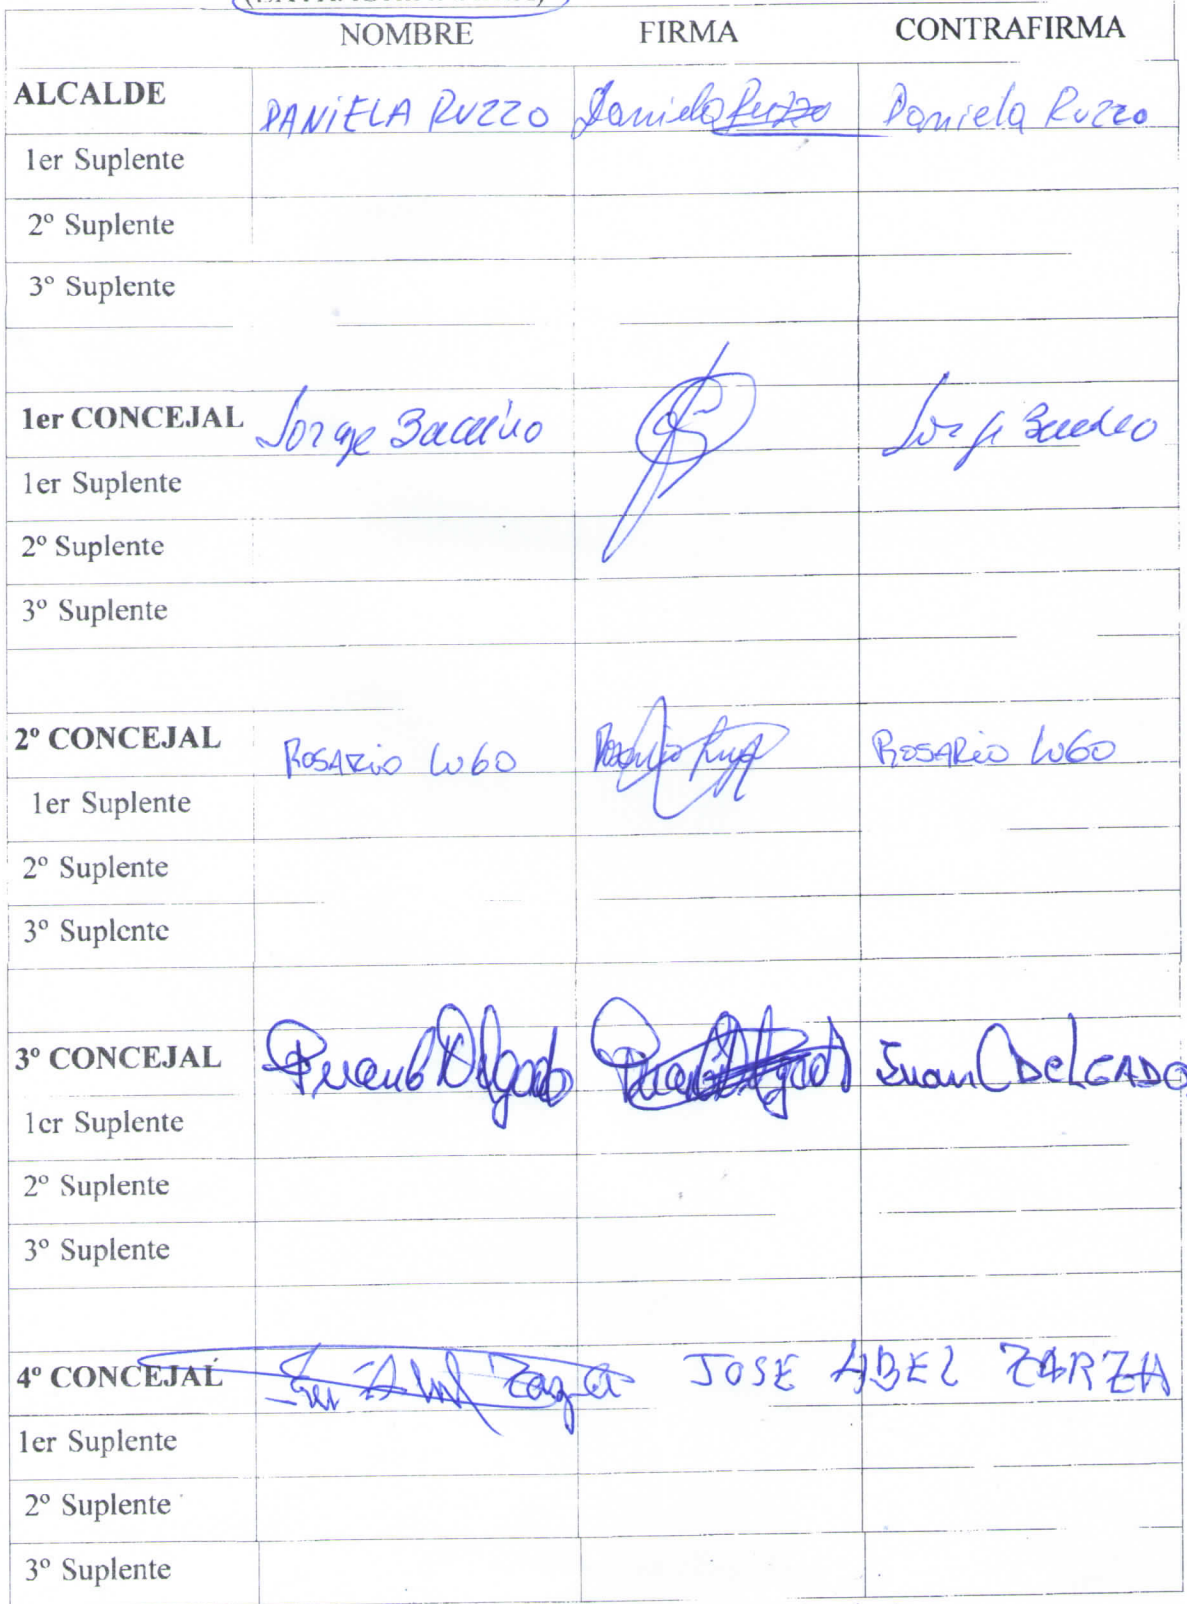 NOMBRE FIRMA CONTRAFIRMA
ALCALDE DANIELA RUZZO Daniela Ruzzo Daniela Ruzzo
1er Suplente
2º Suplente
3º Suplente
1er CONCEJAL Jorge
1er Suplente
2º Suplente
3º Suplente
2º CONCEJAL ROSARIO LUGO Rosario Lugo ROSARIO LUGO
1er Suplente
2º Suplente
3º Suplente
3º CONCEJAL Delgado Juan C DELGADO
1er Suplente
2º Suplente
3º Suplente
4º CONCEJAL JOSE ABEL ZARZA
1er Suplente
2º Suplente
3º Suplente